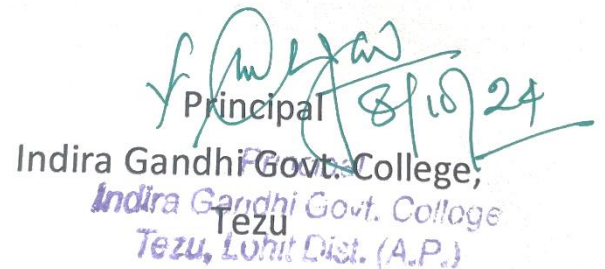 8/10/24
Principal
Indira Gandhi Govt. College,
Tezu
Principal
Indira Gandhi Govt. College
Tezu, Lohit Dist. (A.P.)